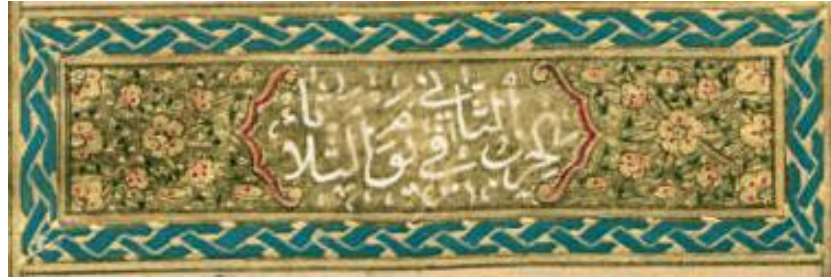 الحزب الثاني في يوم الثلاثاء